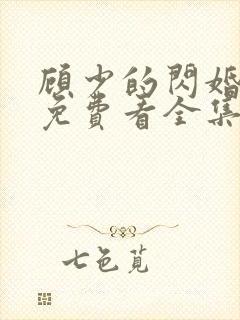 顾少的閃婚
免費看全集
七色苋